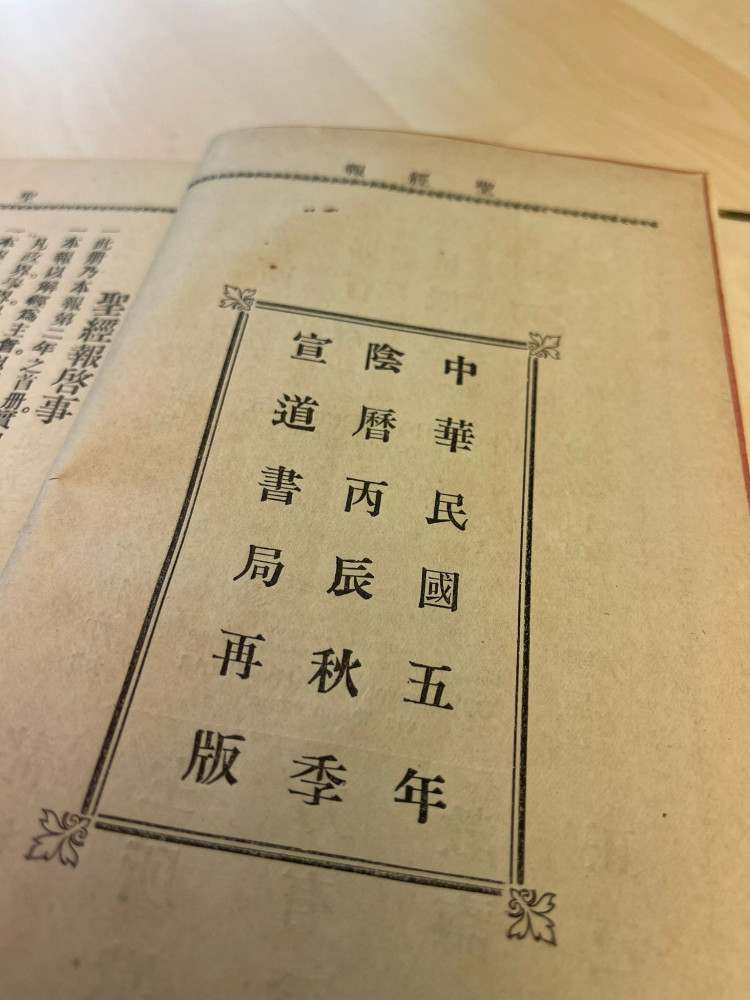 報經聖
中華民國五年
陰曆丙辰秋季
宣道書局再版
聖
聖經報啓事
一此册乃本報第二年之首册
一本報以解經爲主